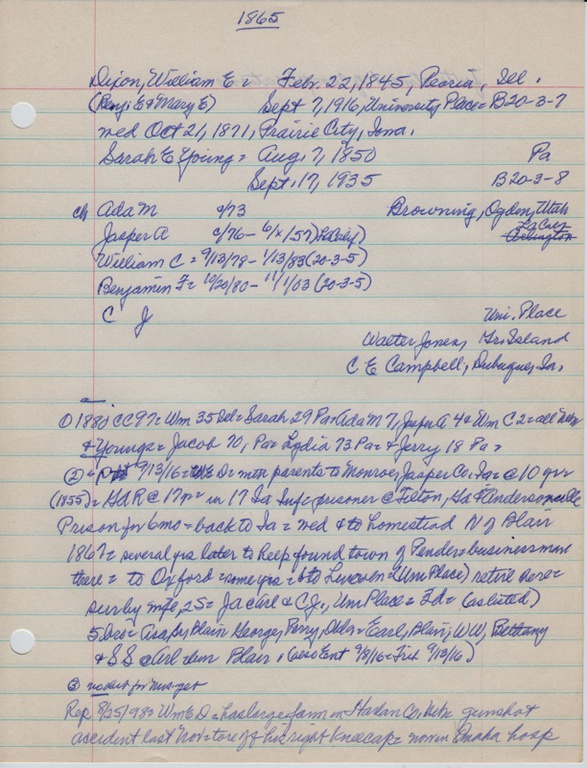 1865
Dixon, William E = Feb. 22, 1845, Peoria, Ill.
(Benj. E & Mary E) Sept 7, 1916, University Place = B20-3-7
wed Oct 21, 1871, Prairie City, Iowa.
Sarah E Young = Aug. 7, 1850 Pa
Sept. 17, 1935 B20-3-8
ch Ada M c/73 Browning, Ogden, Utah
Jasper A c/76 - 6/x/57) LaCal
William C = 9/13/78 - 1/13/83 (20-3-5) Arlington
Benjamin F = 10/20/80 - 11/1/03 (20-3-5)
C J Uni. Place
Walter Jones, Gr. Island
C E Campbell, Dubuque, Ia.
① 1880 CC 97 = Wm 35 = Sarah 29 Pa = Ada M 7, Jasper A 4 = Wm C 2 = all Neb
& Youngs = Jacob 70, Pa = Lydia 73 Pa = & Jerry 18 Pa =
② 9/13/16 = WE D = parents to Monroe, Jasper Co. Ia = @ 10 yrs
(1855) = GAR @ 17 = in 17 Ia Inf = prisoner @ Tilton, Ga & Andersonville
Prison for 6 mo = back to Ia = wed & to homestead N of Blair
1867 = several yrs later to help found town of Pender = business man
there = to Oxford = some yrs = to (Uni Place) retire here =
surby wife, 2S = Ja Carl & C J., Uni Place = 3d = (as listed)
5 = Blair, George, Perry, = Earl, Blair, WW, Bethany
& SS Blair. 9/8/16 = Fri 9/13/16)
③
Rep 8/25/98 = Wm E D = has large farm in Co. gunshot
accident last Nov = tore off his right kneecap = now in Omaha hosp